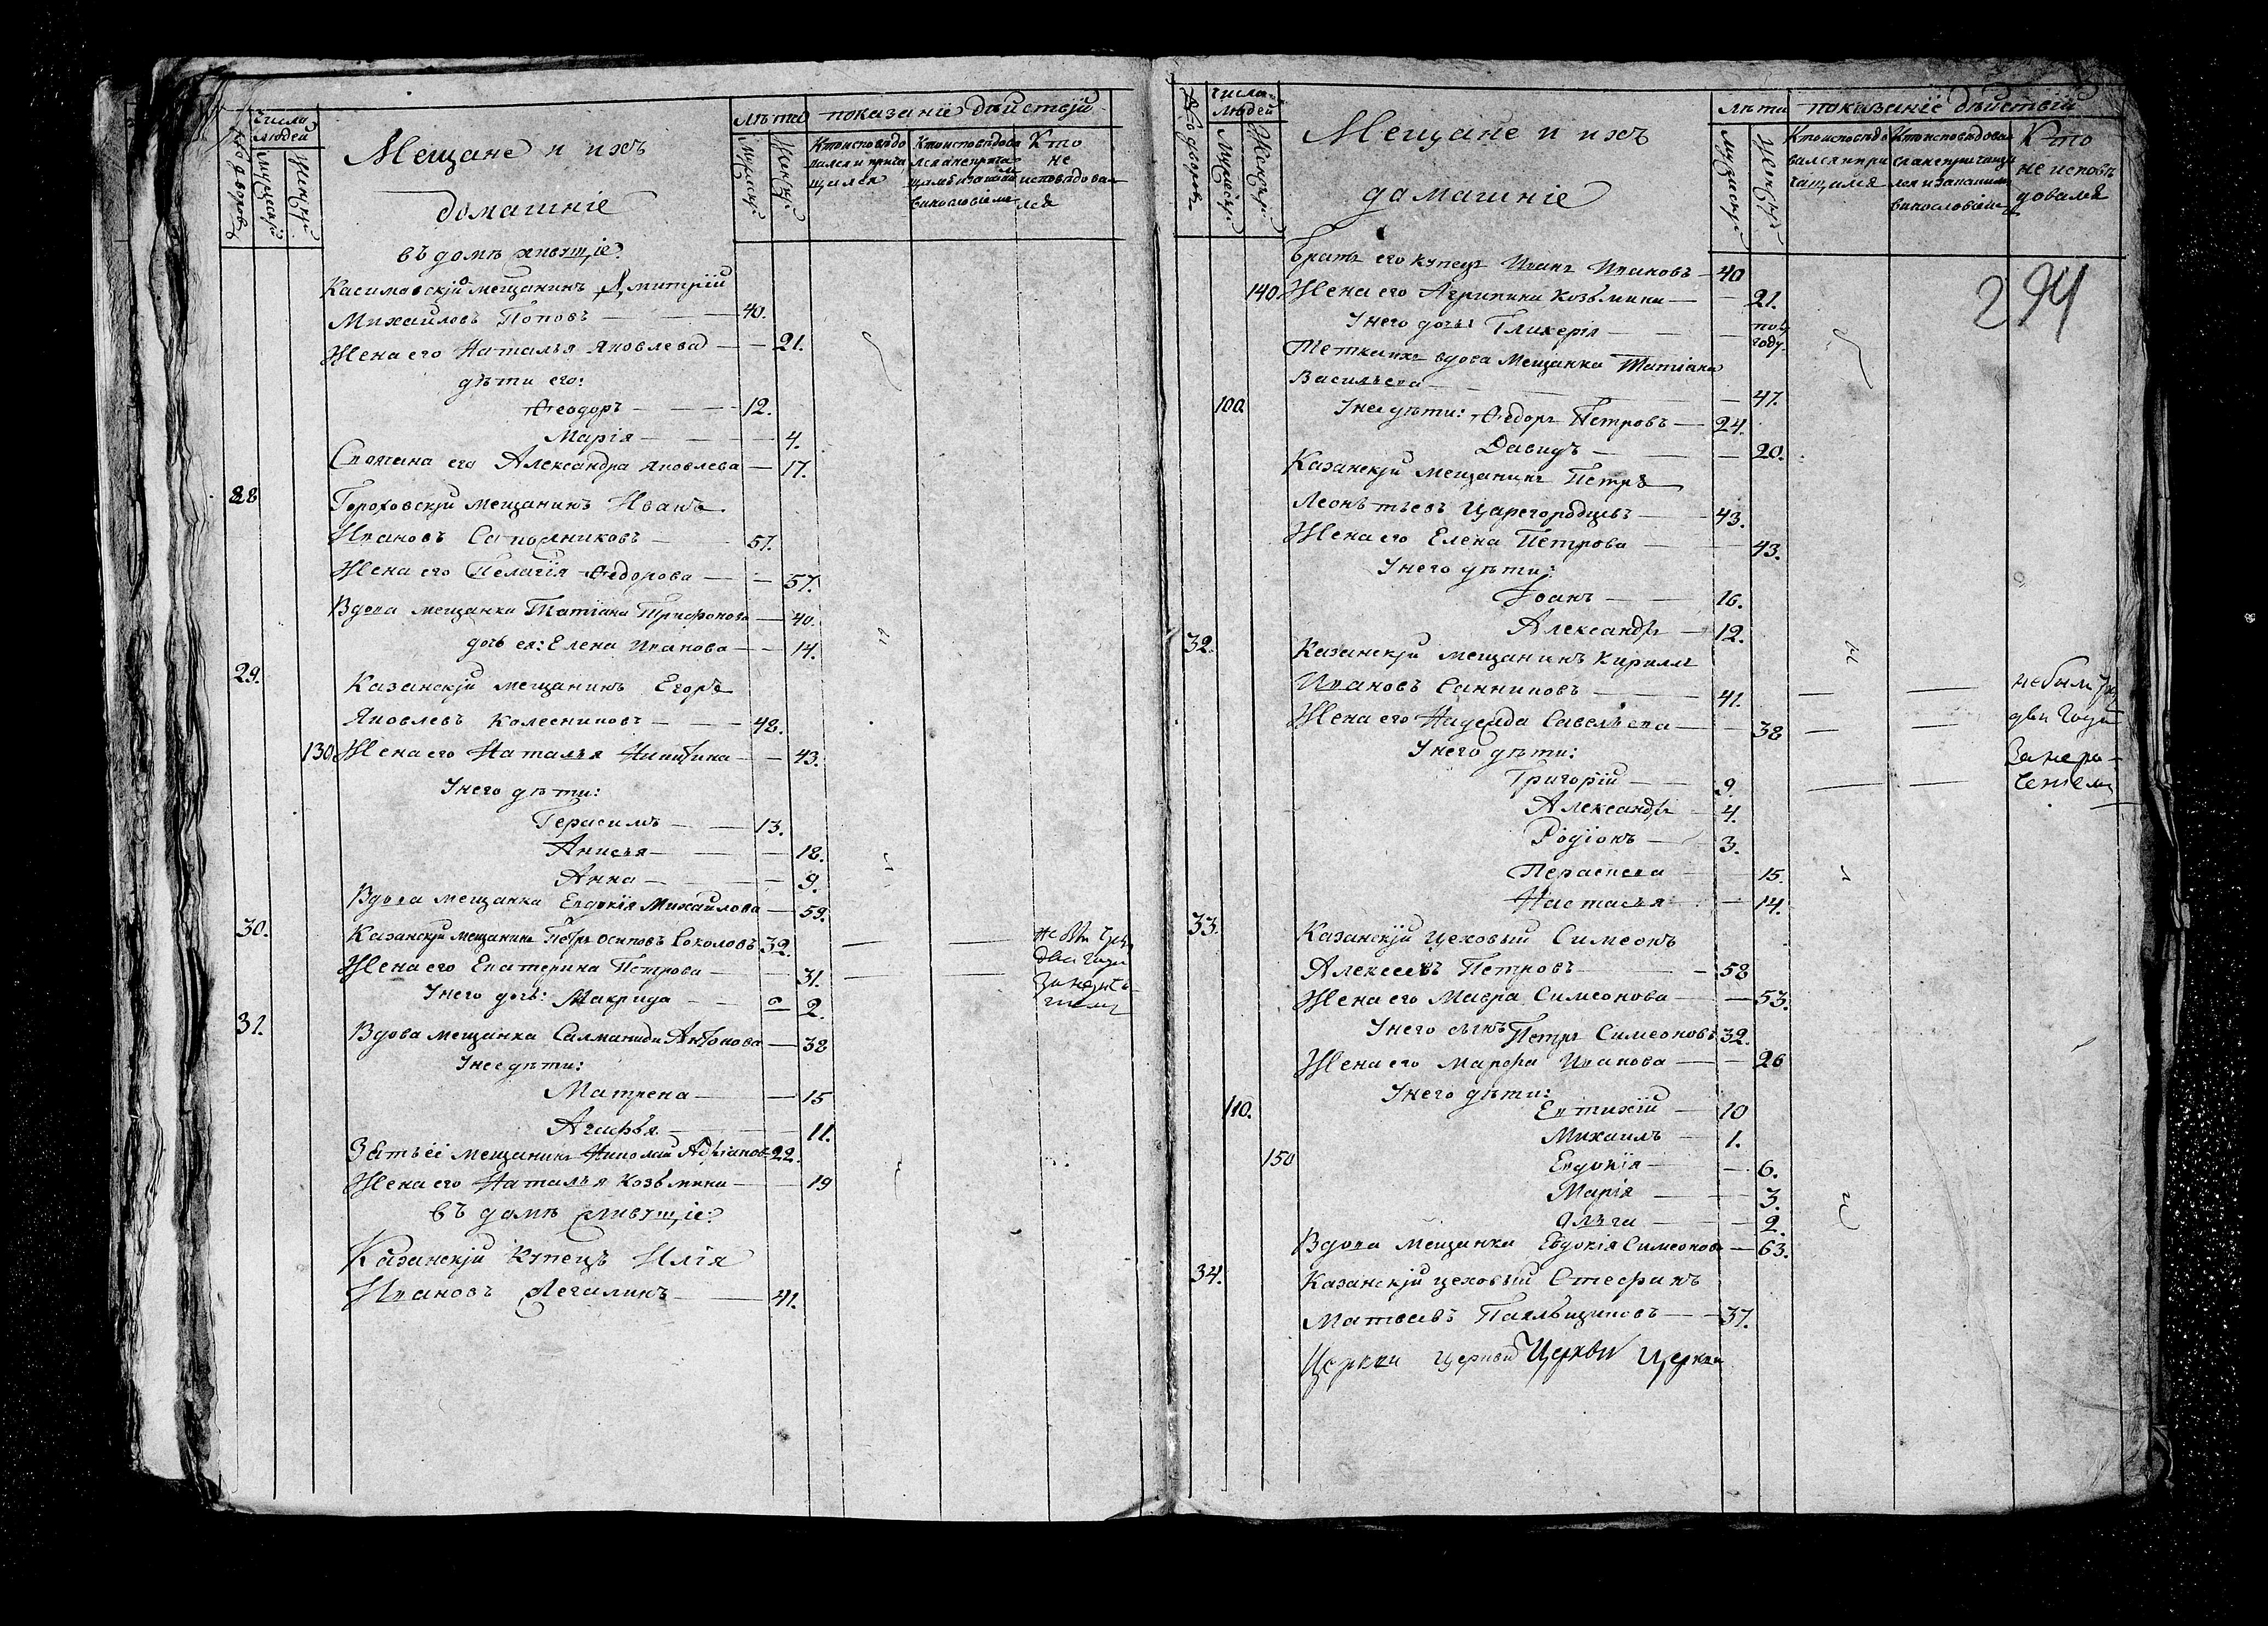 Число людей
Мужеск:
Женск:
Мещане и ихъ
домашніе
лѣта
показаніе дѣйствій
Кто исповѣдовался и причащался
Кто
не
исповѣдовался
въ домѣ живущіе:
Касимовскій мещанинъ Дмитрій
Михаиловъ Поповъ — 40.
Жена его Наталья Яковлева — 21.
дѣти его:
Ѳеодоръ — 12.
Марія — 4.
Своячена его Александра Яковлева — 17.
28 Гороховскій мещанинъ Иванъ
Ивановъ Сапожниковъ — 57.
Жена его Пелагія Ѳедорова — 57.
Вдова мещанка Татіана Трифонова — 40.
дочь ея: Елена Иванова — 14.
29. Казанскій мещанинъ Егоръ
Яковлевъ Колесниковъ — 48.
130. Жена его Наталья Никитина — 43.
У него дѣти:
Герасимъ — 13.
Анисья — 18.
Анна — 9.
Вдова мещанка Евдокія Михаилова — 59.
30. Казанскій мещанинъ Петръ Осиповъ Соколовъ 32.
Жена его Екатерина Петрова — 31.
У него дочь: Макрида — 2.
31. Вдова мещанка Саламанида Антонова — 38
У нее дѣти:
Матрена — 15
Агафья — 11.
Зять её мещанинъ Николай Адріановъ 22.
Жена его Наталья Козьмина — 19
въ домѣ живущіе:
Казанскій Купецъ Илія
Ивановъ Легалинъ — 41.
Число людей
Мужеск:
Женск:
Мещане и ихъ
дамашніе
лѣта
показаніе дѣйствій
Кто исповѣдовался и причащался
Кто
не исповѣ
довался
294
Братъ его купецъ Иванъ Ивановъ — 40
140 Жена его Агрипина Козьмина — 21.
У него дочь: Гликерія — пол
году.
Тетка ихъ вдова Мещанка Татіана
Васильева — 47.
100. У нее дѣти: Ѳедоръ Петровъ — 24.
Давидъ — 20.
Казанскій мещанинъ Петръ
Леонтьевъ Царегородцевъ — 43.
Жена его Елена Петрова — 43.
У него дѣти:
Іоанъ — 16.
Александръ — 12.
32. Казанскій мещанинъ Кирилъ
Ивановъ Санниковъ — 41. — — не были
Жена его Надежда Савельева — 38 — — два года
У него дѣти: За нера-
Григорій — 9. — — ченіемъ
Александръ 4.
Родіонъ — 3.
Пераскева — 15.
Настасья — 14.
33. Казанскій цеховый Симеонъ
Алексеевъ Петровъ — 58
Жена его Мавра Симеонова — 53.
У него сынъ Петръ Симеоновъ 32.
Жена его Марфа Иванова — 26
У него дѣти:
110. Евтихій — 10
Михаилъ — 1.
150 Евдокія — 6.
Марія — 3.
Ольга — 2.
Вдова Мещанка Евдокія Симеонова — 63.
34. Казанскій цеховый Стефанъ
Матвеевъ Паяльщиковъ — 37.
Церкви церкви Церкви церкви